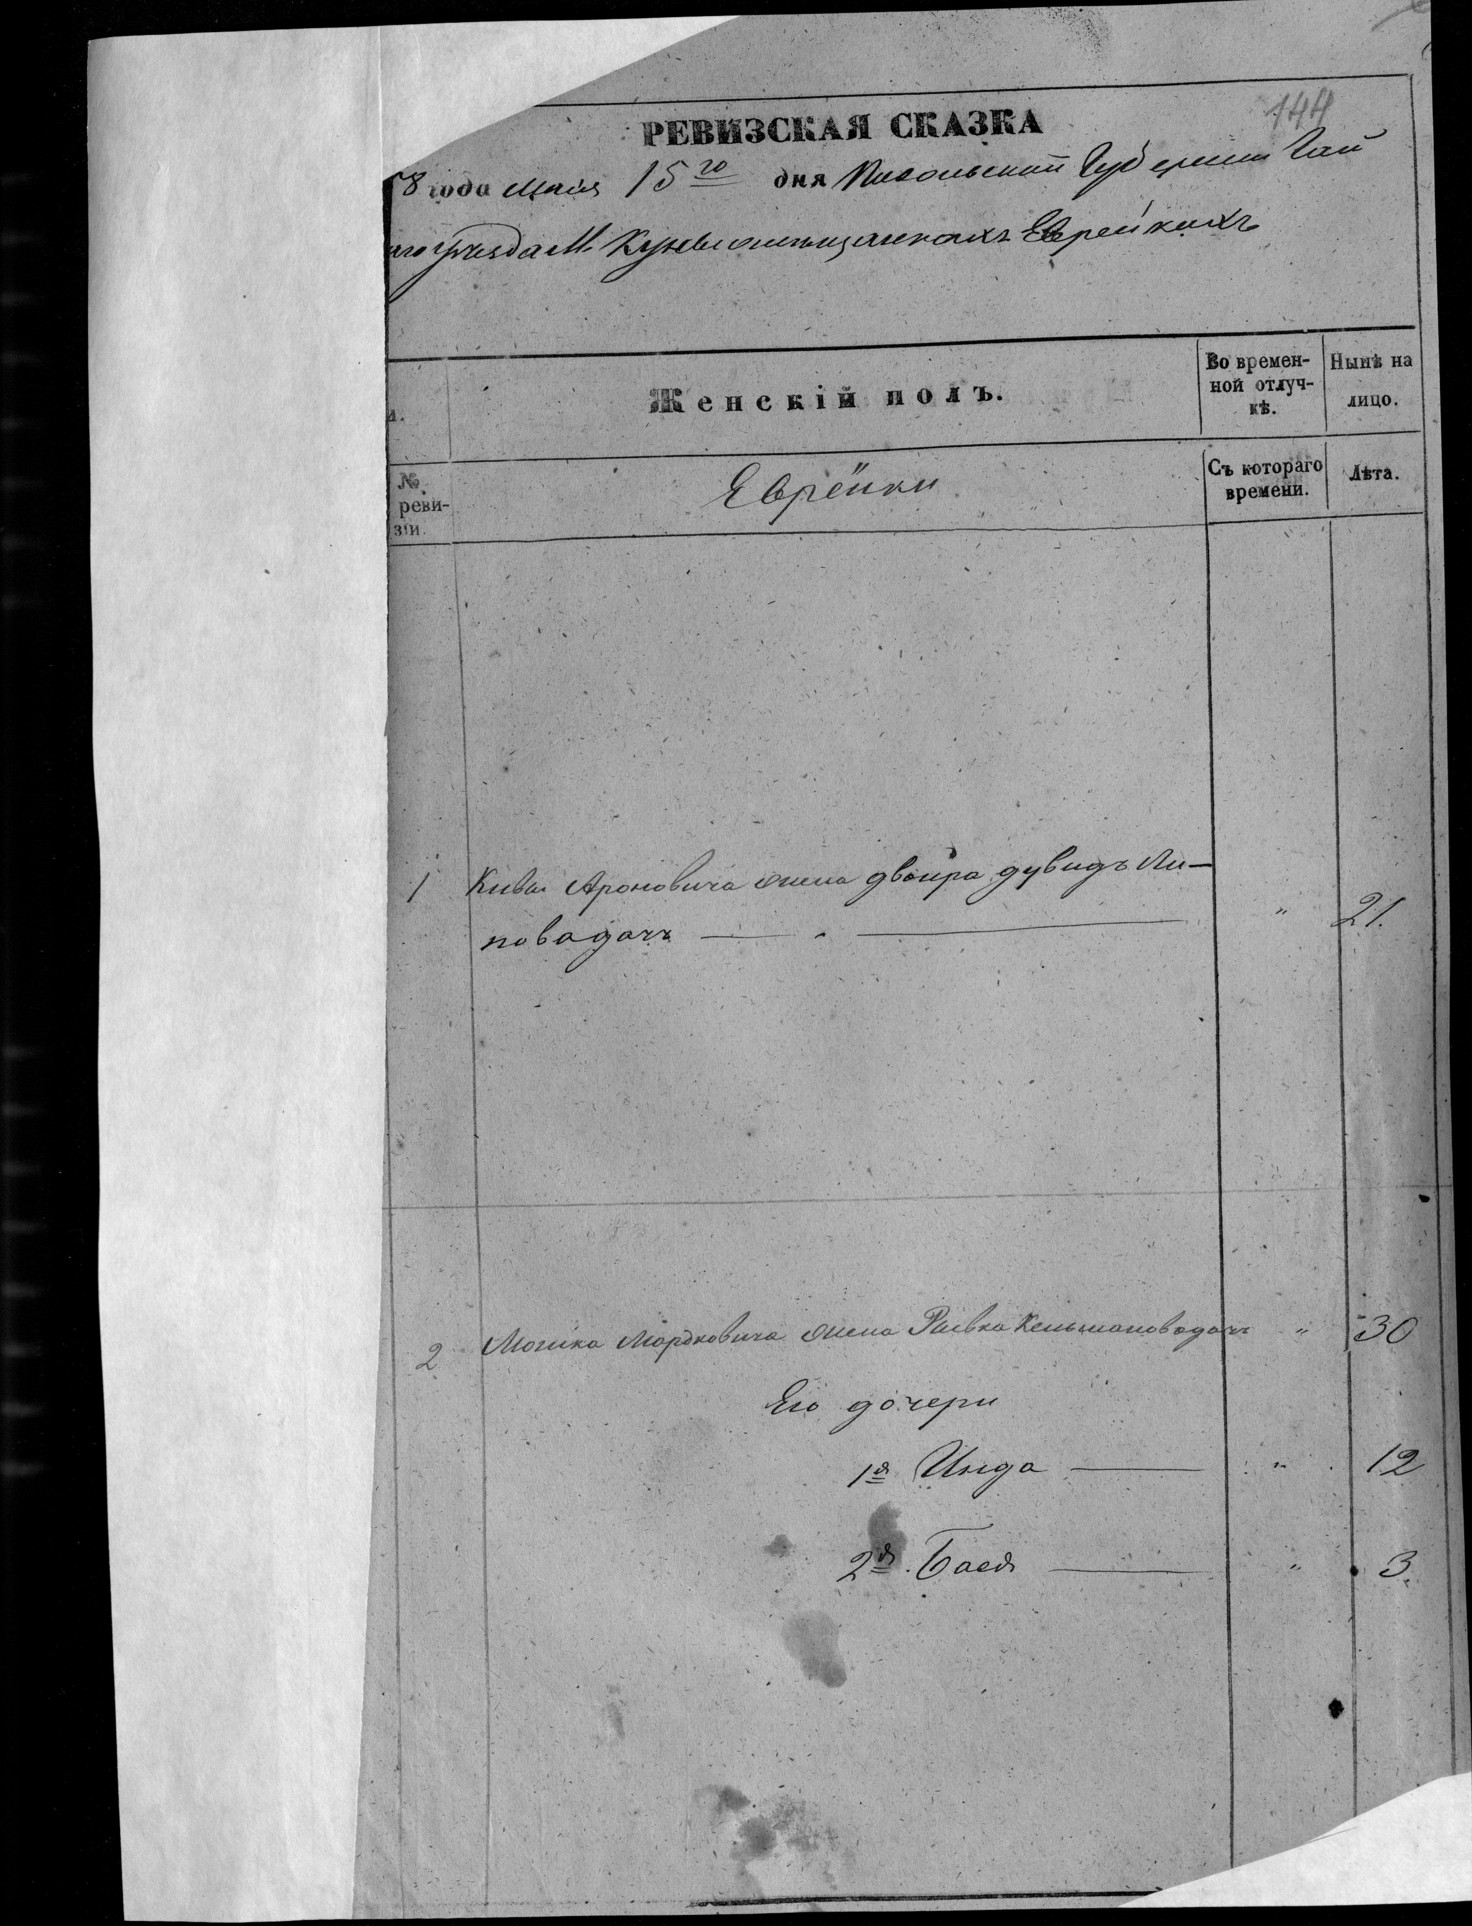 144
РЕВИЗСКАЯ СКАЗКА
58 года мая 15го дня Подольской Губернии Гай
уезда М. Еврейкахъ
Женскій полъ.
Во времен-
ной отлуч-
кѣ.
Нынѣ на
лицо.
№
реви-
зіи.
Еврейки
Съ котораго
времени.
Лѣта.
1 Кивы Ароновича жена двойра дувидъ Ли-
повадочъ — " 21.
2 Мошка Мордковича жена Ривка " 30
Его дочери
1я Инда — " 12
2я Бася — " 3